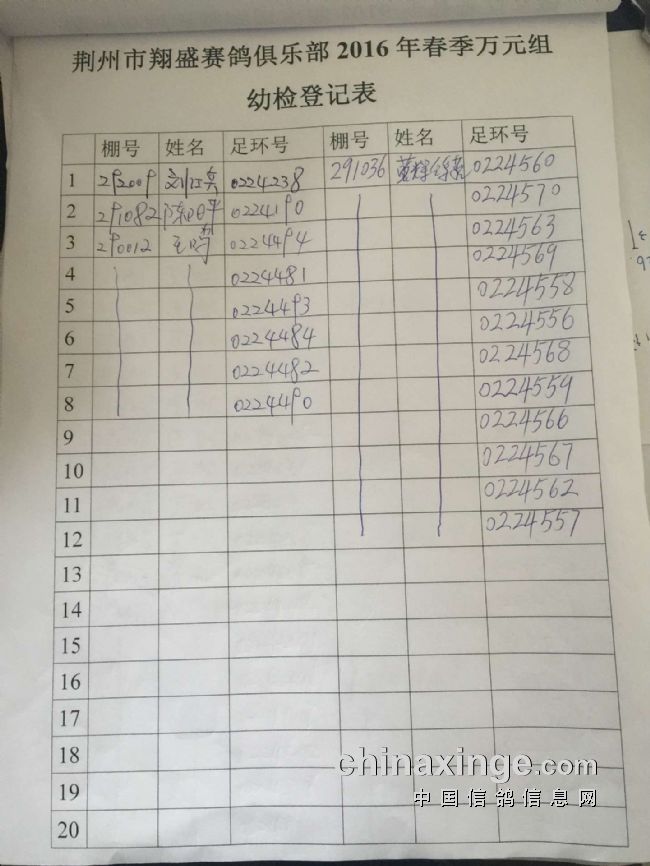 荆州市翔盛赛鸽俱乐部2016年春季万元组
幼检登记表
棚号 姓名 足环号 棚号 姓名 足环号
1 292009 刘江兵 0224238 291036 0224560
2 291082 陈四平 0224190 0224570
3 290012 王鸣 0224494 0224563
4 0224481 0224569
5 0224493 0224558
6 0224484 0224556
7 0224482 0224568
8 0224490 0224559
9 0224566
10 0224567
11 0224562
12 0224557
13
14
15
16
17
18
19
20
chinaxinge.com
中国信鸽信息网